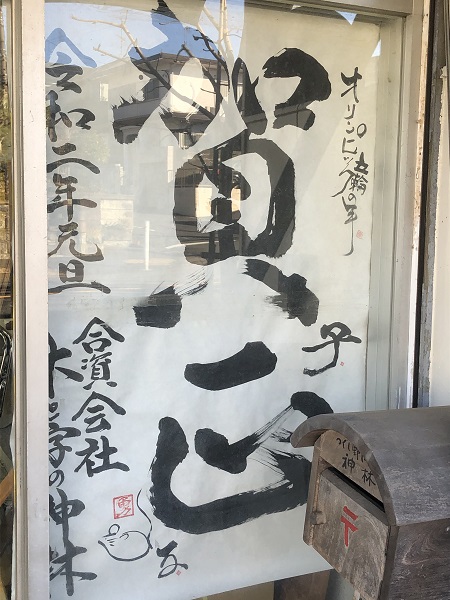 オリンピック五輪の年
賀正
子
令和二年元旦
合資会社
木と字の神林
子
神林
〒